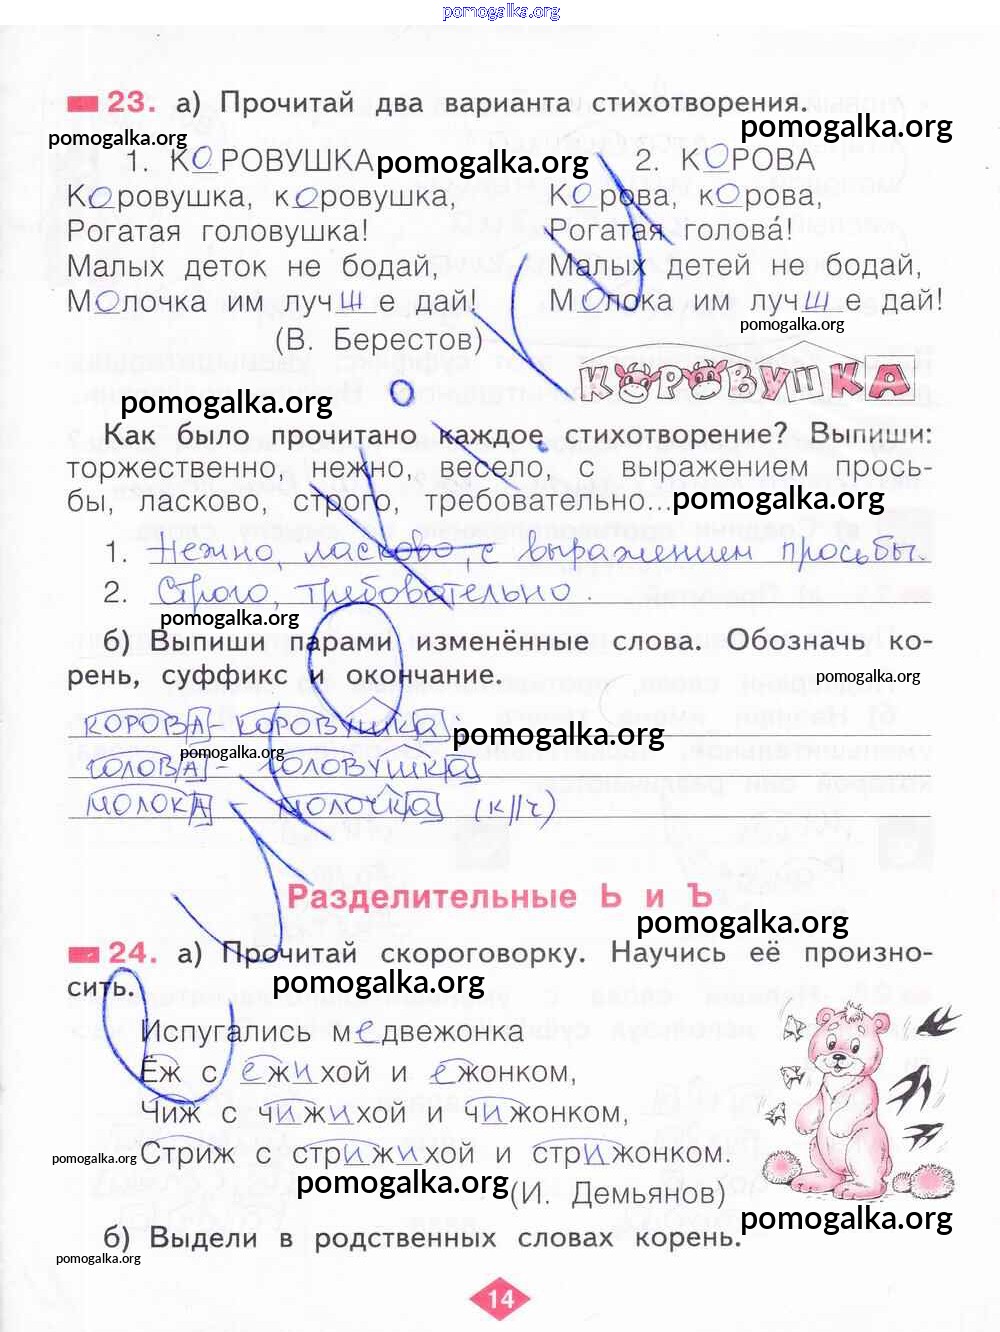 pomogalka.org
23. а) Прочитай два варианта стихотворения.
pomogalka.org
pomogalka.org
1. КОРОВУШКА
pomogalka.org
2. КОРОВА
Коровушка, коровушка,
Корова, корова,
Рогатая головушка!
Рогатая голова́!
Малых деток не бодай,
Малых детей не бодай,
Молочка им лучше дай!
Молока им лучше дай!
pomogalka.org
(В. Берестов)
КОРОВУШКА
pomogalka.org
Как было прочитано каждое стихотворение? Выпиши:
торжественно, нежно, весело, с выражением прось-
бы, ласково, строго, требовательно...
pomogalka.org
1. Нежно, ласково, с выражением просьбы.
2. Строго, требовательно.
pomogalka.org
б) Выпиши парами изменённые слова. Обозначь ко-
рень, суффикс и окончание.
pomogalka.org
корова - коровушка;
pomogalka.org
pomogalka.org
голова - головушка
молока - молочка (к//ч)
Разделительные Ь и Ъ
pomogalka.org
24. а) Прочитай скороговорку. Научись её произно-
сить.
pomogalka.org
Испугались медвежонка
Ёж с ежихой и ежонком,
Чиж с чижихой и чижонком,
Стриж с стрижихой и стрижонком.
pomogalka.org
pomogalka.org
(И. Демьянов)
pomogalka.org
б) Выдели в родственных словах корень.
pomogalka.org
14